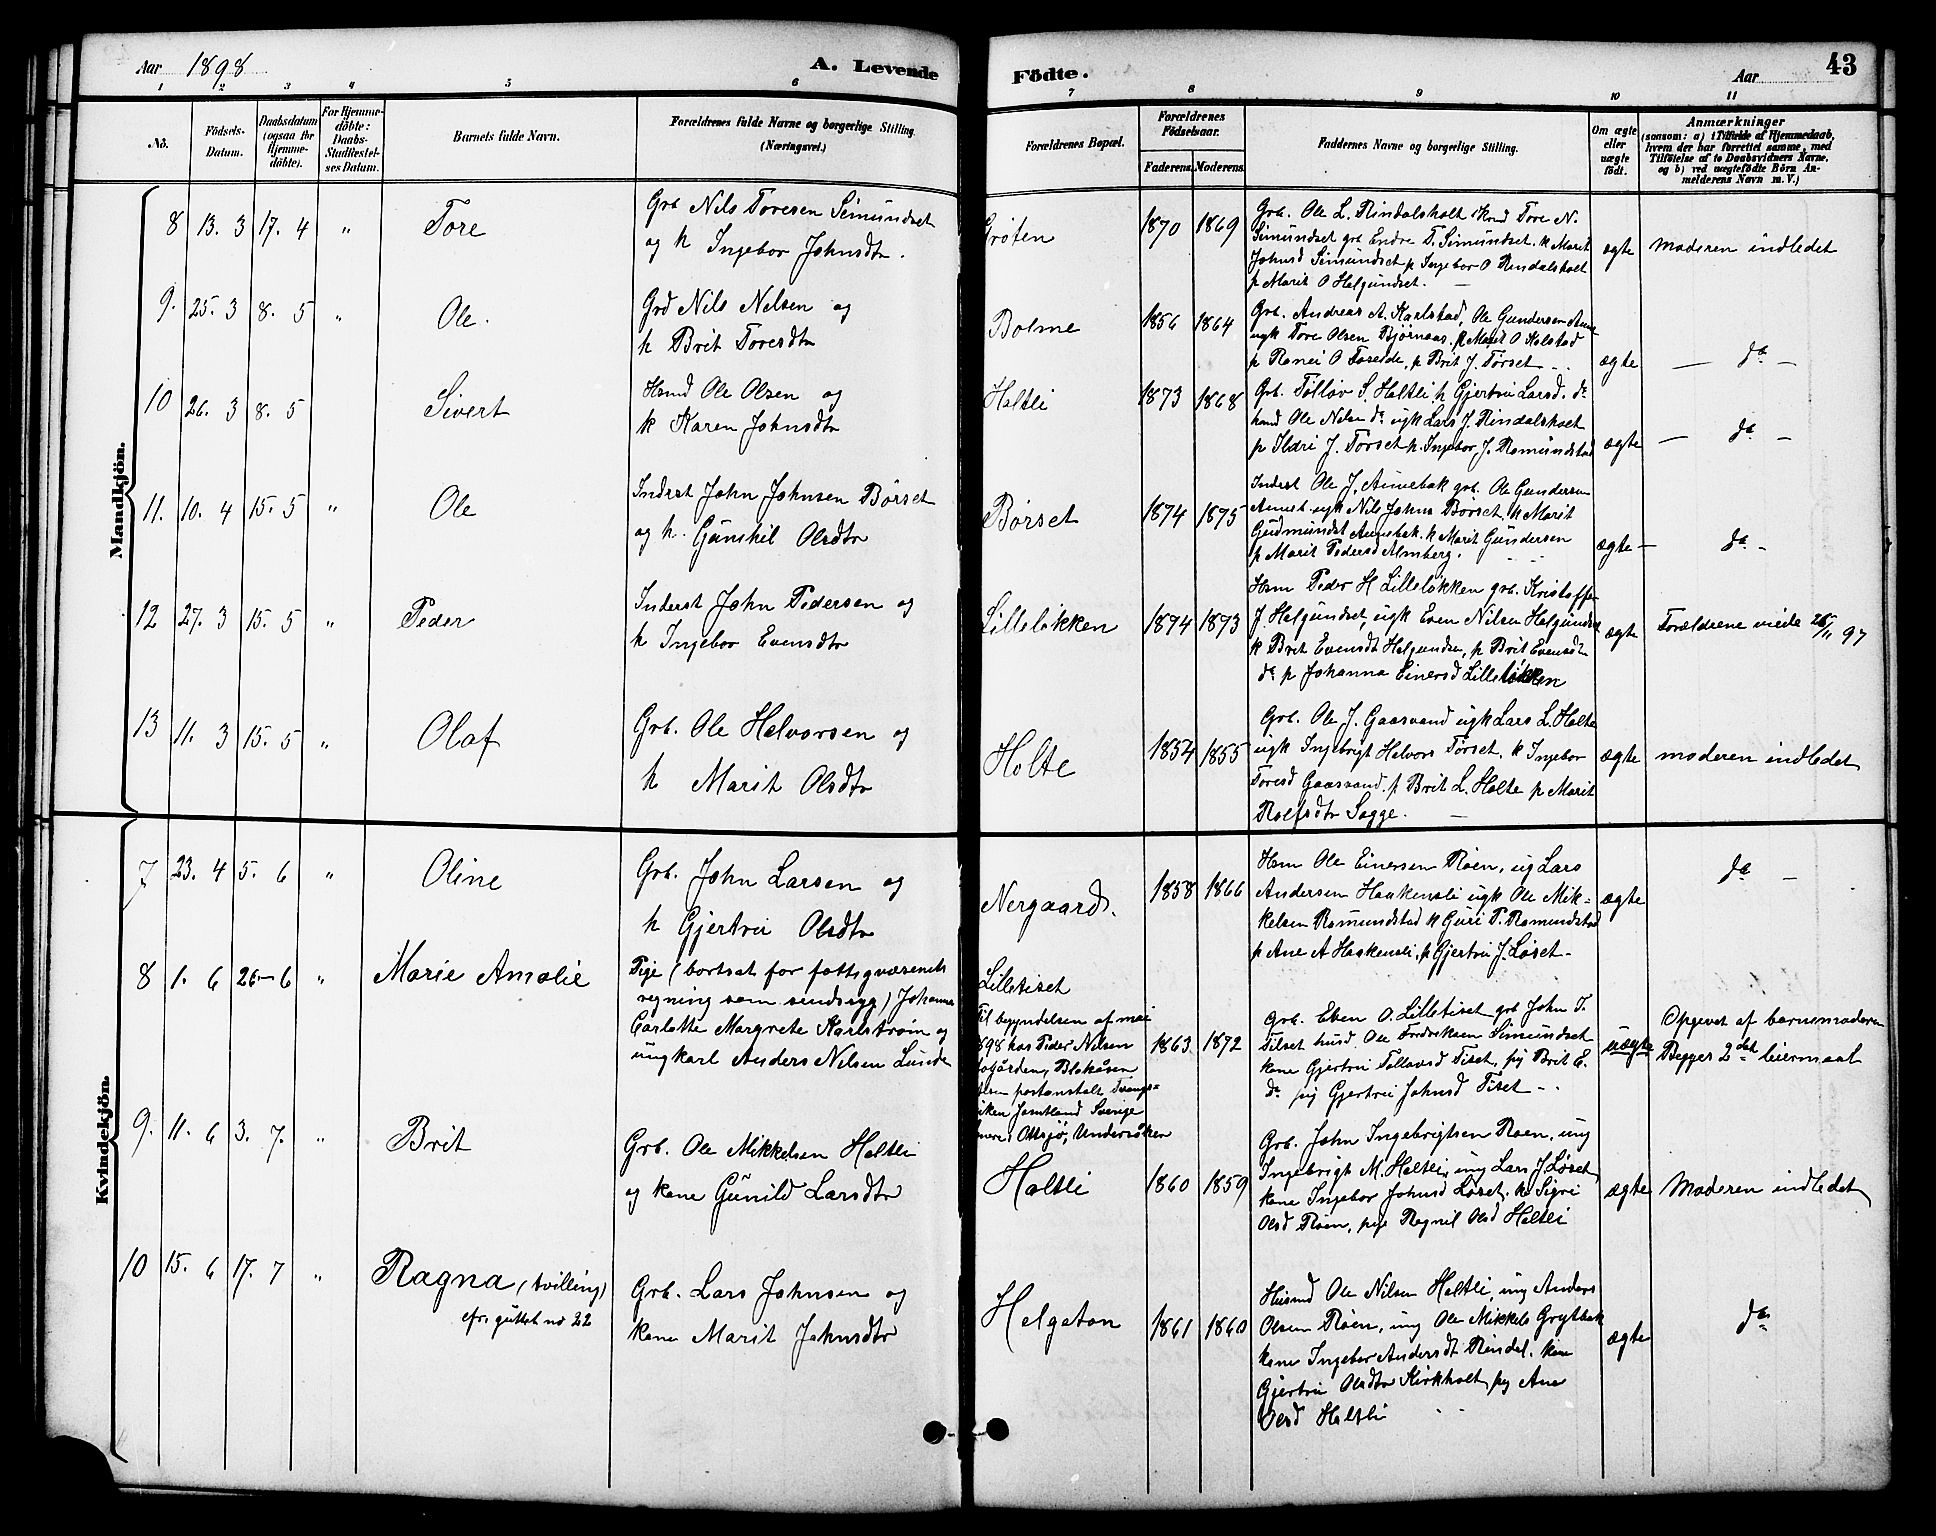 Aar 1898
A. Levende
Födte.
Aar
43
1 2 3 4 5 6 7 8 9 10 11
No.
Födsels-
Datum.
Daabsdatum
(ogsaa for
Hjemme-
döbte).
For Hjemme-
döbte:
Daabs-
Stadfæstel-
ses Datum.
Barnets fulde Navn.
Forældrenes fulde Navne og borgerlige Stilling.
(Næringsvei.)
Forældrenes Bopæl.
Forældrenes
Födselsaar.
Faderens. Moderens.
Faddernes Navne og borgerlige Stilling.
Om ægte
eller
uægte
født.
Anmærkninger
(saasom: a) i Tilfælde af Hjemmedaab,
hvem der har forrettet samme, med
Tilföielse af to Daabsvidners Navne,
og b) ved uægtefödte Börn An-
melderens Navn m. V.)
Mandkjön.
8 13. 3 17. 4 " Tore
Grb Nils Toresen Simundset
og k Ingebor Johnsdtr.
Grøten
1870 1869
Grb. Ole L. Rindalsholt Tore N.
Simundset grb Endre T. Simundset. k Marit
Johnsd Simundset p Ingebor O Rindalsholt
p Marit O Helgundset.
ægte
moderen indledet
9. 25. 3 8. 5 " Ole.
Grd Nils Nelsen og
k Brit Toresdtr
Bolme
1856 1864
Grb. Andreas A. Karlstad, Ole Gundersen Aune
ugk Tore Olsen Bjørnaas. p Marit O Kalstad
p Ranei O Faredde, p Brit J. Tørset
ægte
— da —
10 26. 3 8. 5 Sivert
Hsmd Ole Olsen og
k Karen Johnsdtr
Haltli
1873 1868
Grb. Tølløv S. Haltli k Gjertru Larsd. do
husmd Ole Nilsen do ugk Lars J. Rindalsholt
p Ildri J. Tørset k. Ingebor J. Romundstad
ægte
— da —
11. 10. 4 15. 5 " Ole
Inderst John Johnsen Børset
og k. Gunhil Olsdtr
Børset
1874 1875
Inderst Ole J. Aunebak grb. Ole Gundersen
Aunet ugk Nils Johns Børset, k Marit
Gudmundst Aunebak. k Marit Gundersen
p Marit Pedersd Almberg.
ægte —
da —
12 27. 3 15. 5 " Peder
Inderst John Pedersen og
k Ingebor Evensdtr
Lilleløkken
1874 1873
Hsm Peder H Lilleløkken grb. Kristoffer
J. Helgundset, ugk Even Nilsen Helgundset
k Brit Evensdt Helgundse, p Brit Evensdtr
do p Johanna Einersd Lilleløkken
ægte
Forældrene viede 26/11 97
13 11. 3 15. 5 " Olaf
Grb. Ole Halvorsen og
k Marit Olsdtr
Holte
1854 1855
Grb. Ole J. Gaasvand ugk Lars L. Holte
ugk Ingebrigt Halvors Tørset. k Ingebor
Toresd Gaasvand. p Brit L. Holte p Marit
Rolfsdtr Sagge.
ægte
moderen indledet
Kvindekjön.
7 23. 4 5. 6 " Oline
Grb. John Larsen og
k Gjertru Olsdtr
Nergaard.
1858 1866
Hsm Ole Einersen Røen, ug Lars
Andersen Haakensli ugk Ole Mik-
kelsen Romundstad k Guri T. Romundstad
p Ane A Haakensli, p Gjertru J. Løset
ægte
da —
8 1. 6 26 — 6 " Marie Amalie
Pige (bortsat for fattigvæsenets
regning som sindssyg) Johanna
Carlotte Margrete Karlstrøm og
ungkarl Anders Nilsen Lunde
Lilletiset
Til begyndelsen af mai
1898 hos Peder Nilsen
Blokåsen
postanstalt
Jamtland Sverige
Ottsjø, Undersåker
1863 1872
Grb. Even O. Lilletiset grb John T.
Tiset husd. Ole Fredriksen Simundset
kone Gjertru Tollavsd Tiset, pig Brit E.
do pig Gjertru Johnsd Tiset
uægte
Opgivet af barnemoderen
Begges 2det leiermaal
9. 11. 6 3. 7. " Brit
Grb. Ole Mikkelsen Haltli
og kone Gunild Larsdtr
Haltli
1860 1859
Grb. John Ingebrigtsen Røen, ung
Ingebrigt M. Haltli, ung Lars J. Løset
kone Ingebor Johnsd Løset. k Sigri
Olsd Røen, pige Ragnil Olsd Haltli
ægte
Moderen indledet
10 15. 6 17. 7 " Ragna (tvilling)
cfr. guttek no 22
Grb. Lars Johnsen og
kone Marit Johnsdtr
Helgeton
1861 1860
Husmd Ole Nilsen Haltli, ung Anders
Olsen Røen, ung Ole Mikkels Grytbak
kone Ingebor Andersdt Rindal. kone
Gjertru Olsdtr Kirkholt, pig Ane
Olsd Haltli
ægte
da